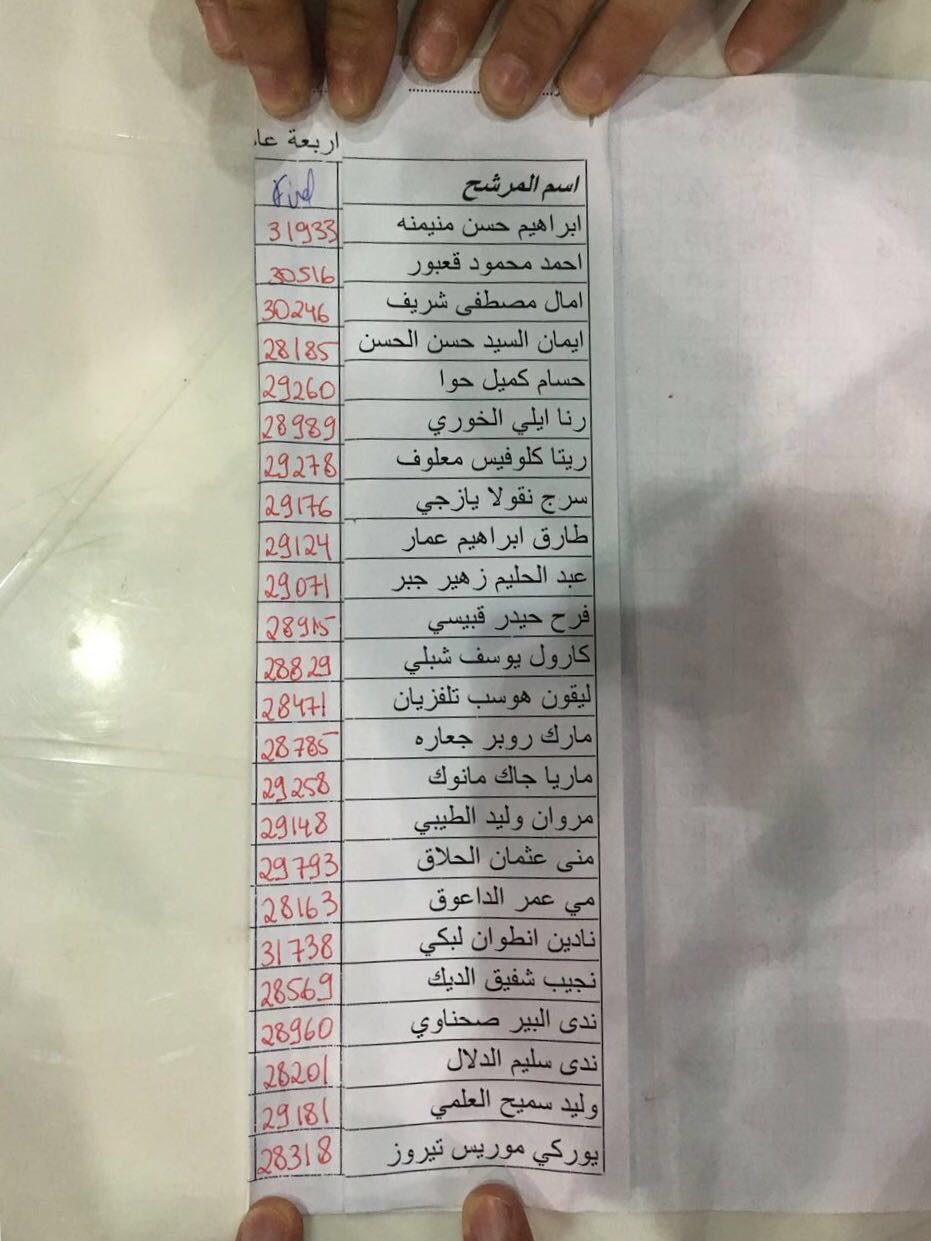 اربعة عا
اسم المرشح Final
ابراهيم حسن منيمنه 31933
احمد محمود قعبور 30516
امال مصطفى شريف 30246
ايمان السيد حسن الحسن 28185
حسام كميل حوا 29260
رنا ايلي الخوري 28989
ريتا كلوفيس معلوف 29278
سرج نقولا يازجي 29176
طارق ابراهيم عمار 29124
عبد الحليم زهير جبر 29071
فرح حيدر قبيسي 28915
كارول يوسف شبلي 28829
ليقون هوسب تلفزيان 28471
مارك روبر جعاره 28785
ماريا جاك مانوك 29258
مروان وليد الطيبي 29148
منى عثمان الحلاق 29793
مي عمر الداعوق 28163
نادين انطوان لبكي 31738
نجيب شفيق الديك 28569
ندى البير صحناوي 28960
ندى سليم الدلال 28201
وليد سميح العلمي 29181
يوركي موريس تيروز 28318